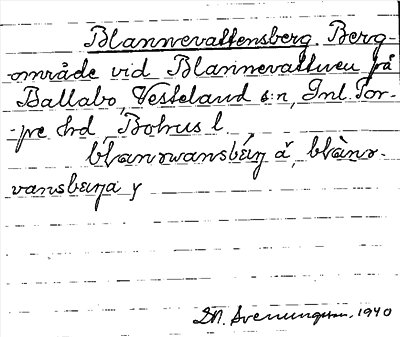 Blannevattensberg. Berg-
område vid Blannevattnen på
Ballabo, Vesteland s:n, Inl. Tor-
pe hd, Bohus l.
vansbärja y
Svenungsson, 1940